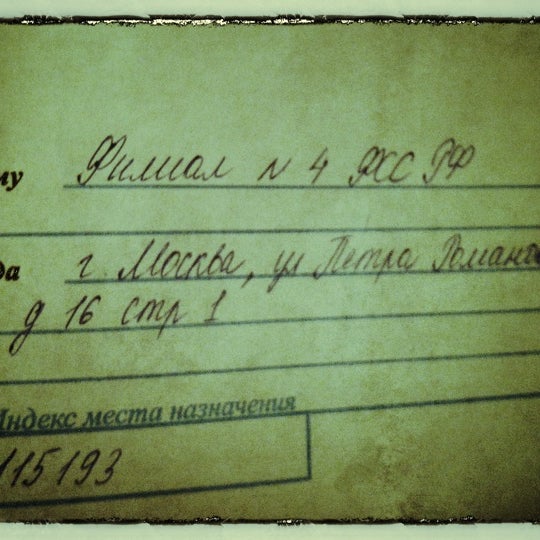 му Филиал N 4 ФСС РФ
да г. Москва, ул Петра Романо
д 16 стр 1
Индекс места назначения
115193